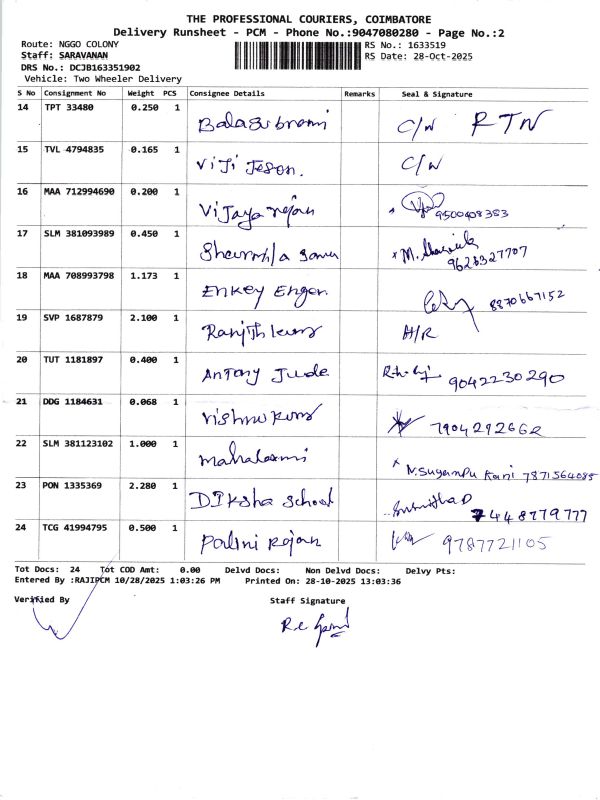 THE PROFESSIONAL COURIERS, COIMBATORE
Delivery Runsheet - PCM - Phone No.:9047080280 - Page No.:2
Route: NGGO COLONY
RS No.: 1633519
Staff: SARAVANAN
RS Date: 28-Oct-2025
DRS No.: DCJB163351902
Vehicle: Two Wheeler Delivery
S No Consignment No Weight PCS Consignee Details Remarks Seal & Signature
14 TPT 33480 0.250 1 Balasubrami C/N RTN
15 TVL 4794835 0.165 1 ViJi Jeson. C/N
16 MAA 712994690 0.200 1 Vijaya rajan 9500408383
17 SLM 381093989 0.450 1 Sharmila 9626327707
18 MAA 708993798 1.173 1 Enkey Engen. 8870667152
19 SVP 1687879 2.100 1 Ranjithkumr H/R
20 TUT 1181897 0.400 1 Antony Jude 9042230290
21 DDG 1184631 0.068 1 Vishnukumr 7904292662
22 SLM 381123102 1.000 1 mahalaxmi N.Sugandu Kani 7871564085
23 PON 1335369 2.280 1 DIKsha School 7448779777
24 TCG 41994795 0.500 1 Palini Rajan 9787721105
Tot Docs: 24 Tot COD Amt: 0.00 Delvd Docs: Non Delvd Docs: Delvy Pts:
Entered By :RAJIPCM 10/28/2025 1:03:26 PM Printed On: 28-10-2025 13:03:36
Verified By Staff Signature